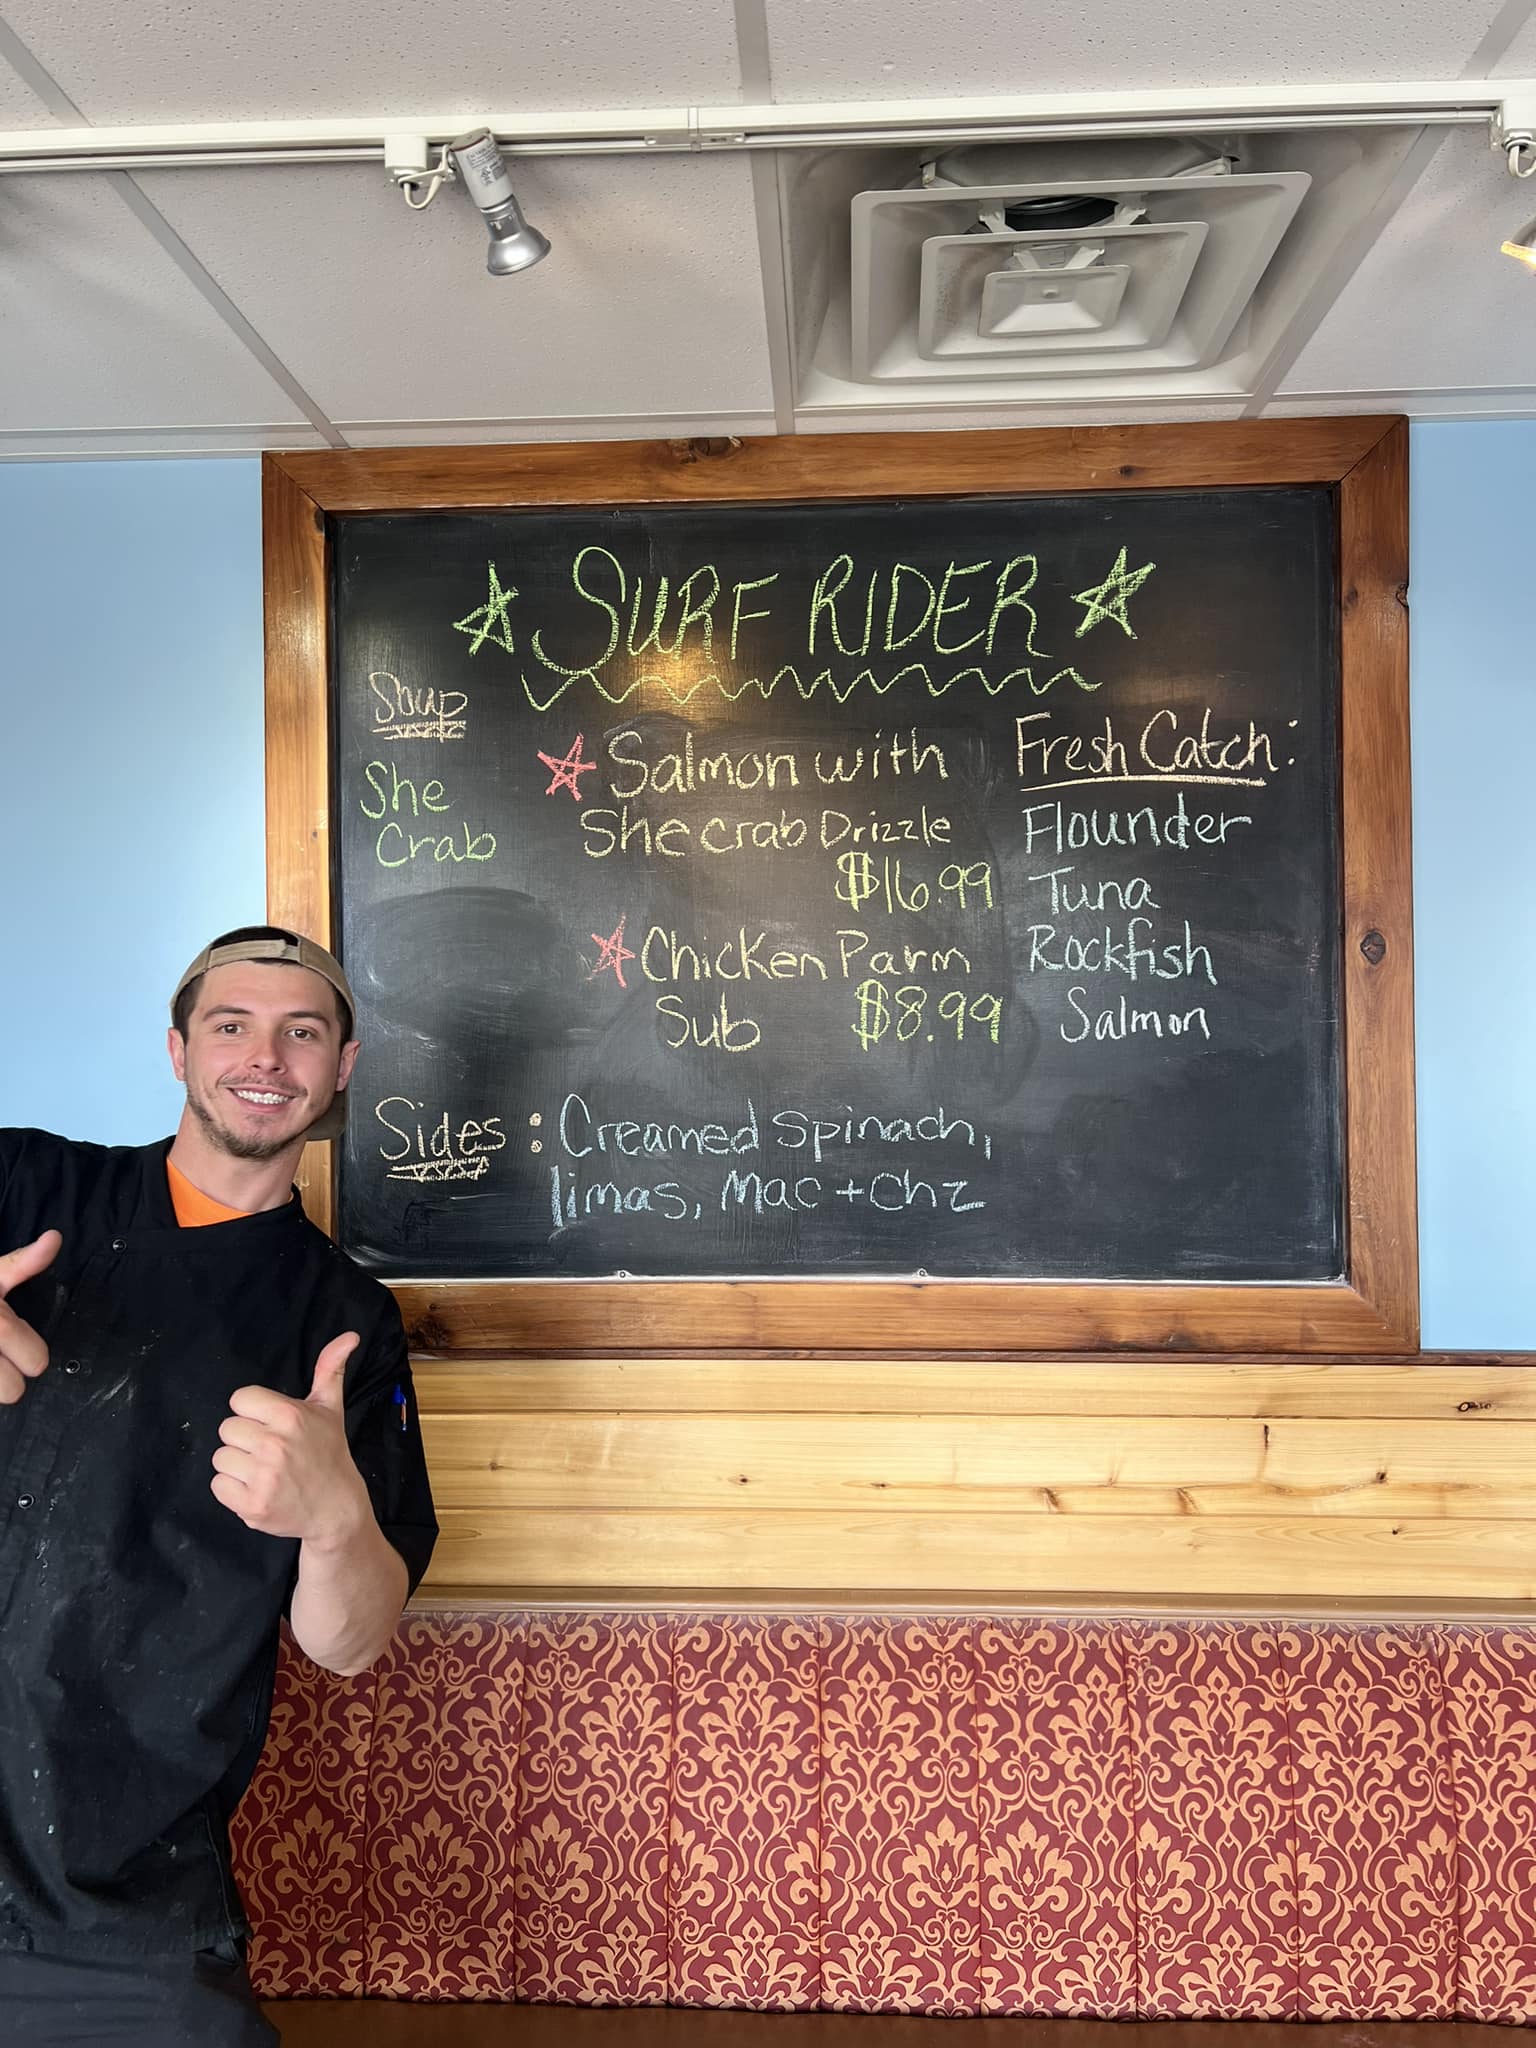 SURF RIDER
Soup
She
Crab
Salmon with
She crab Drizzle
$16.99
Chicken Parm
Sub $8.99
Fresh Catch:
Flounder
Tuna
Rockfish
Salmon
Sides: Creamed Spinach,
limas, Mac + Chz